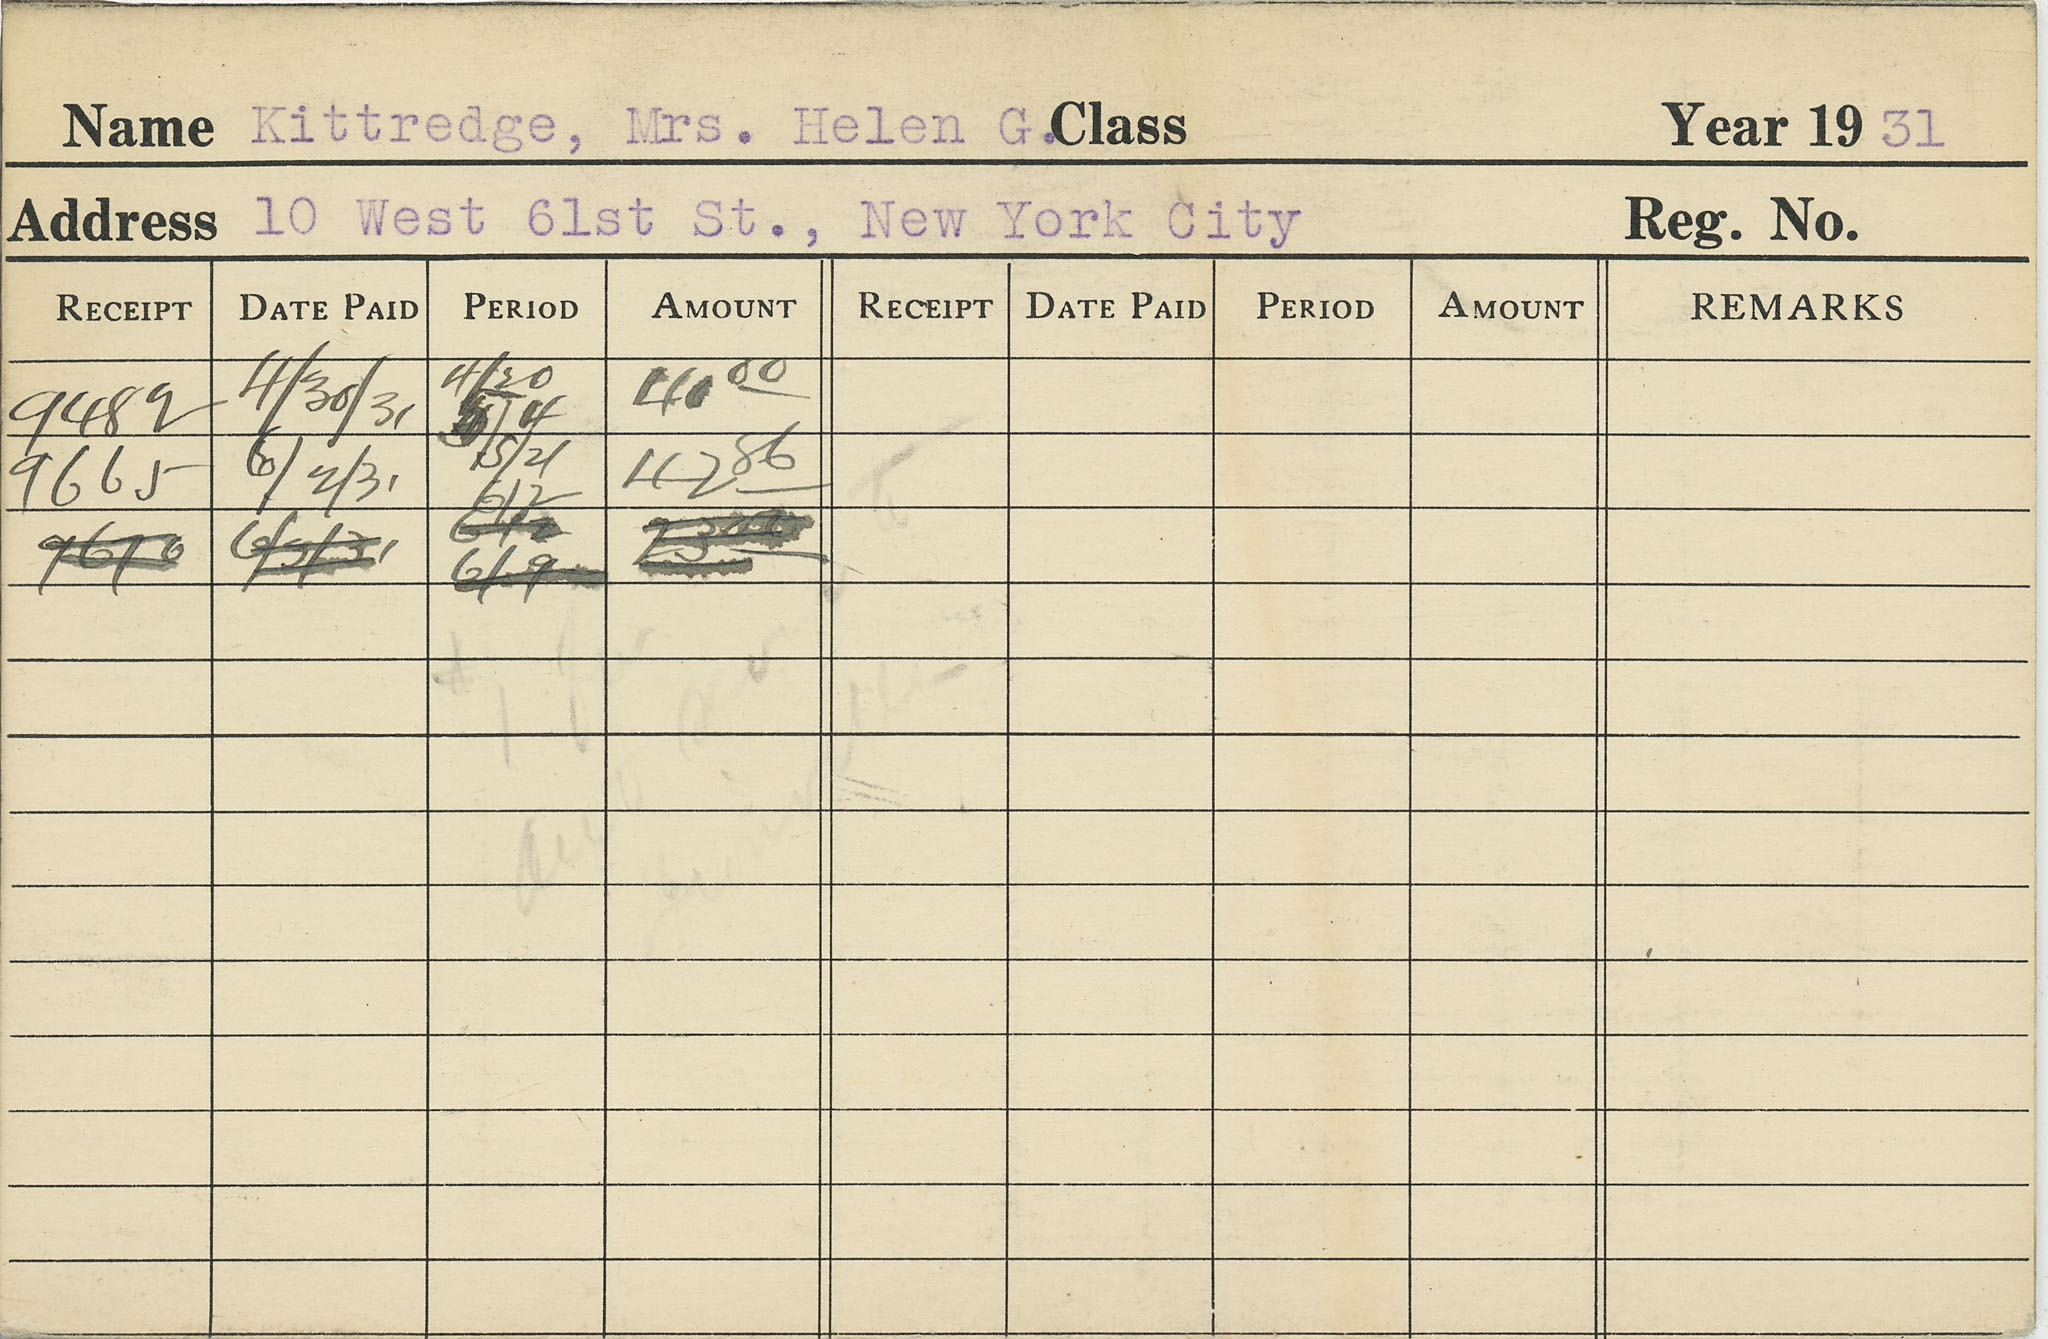 Name Kittredge, Mrs. Helen G. Class Year 19 31
Address 10 West 61st St., New York City Reg. No.
RECEIPT DATE PAID PERIOD AMOUNT RECEIPT DATE PAID PERIOD AMOUNT REMARKS
9482 4/30/31 4/20 40 00
5/14
9665 6/2/31 5/21 42 86
6/2
9670 6/5/31 6/2
6/9